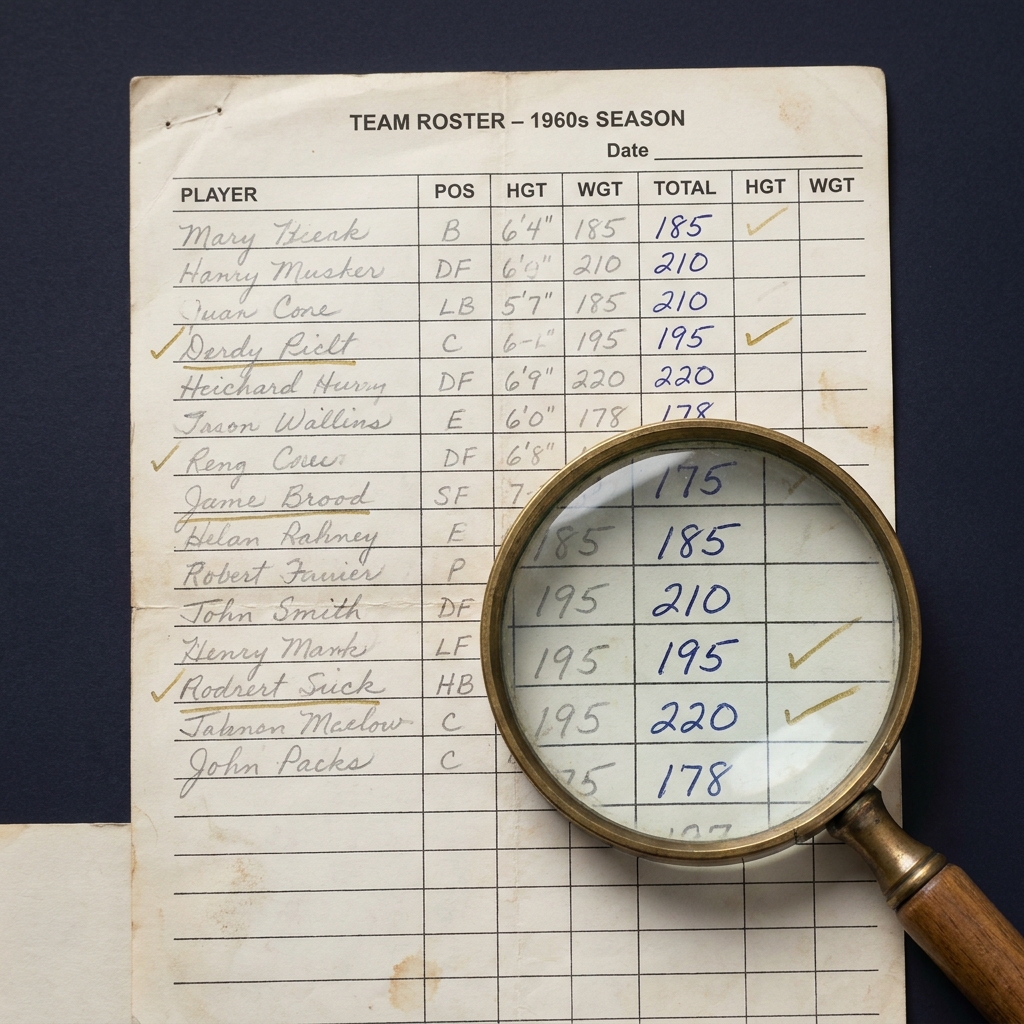 TEAM ROSTER – 1960s SEASON
Date
PLAYER POS HGT WGT TOTAL HGT WGT
Mary B 6'4" 185 185 ✓
Hanry Musker DF 210 210
Juan Cone LB 5'7" 185 210
✓ Derdy Piclt C 195 195 ✓
Heichard DF 6'9" 220 220
Jason Wallins E 6'0" 178 178
✓ Reng DF 6'8" 175
Jame Brood SF 185 185
Helan Rahney E 195 210
Robert P 195 195 ✓
John Smith DF 195 220 ✓
Henry Mank LF 178
✓ Rodrert Suck HB
Tabman Maclow C
John Packs C